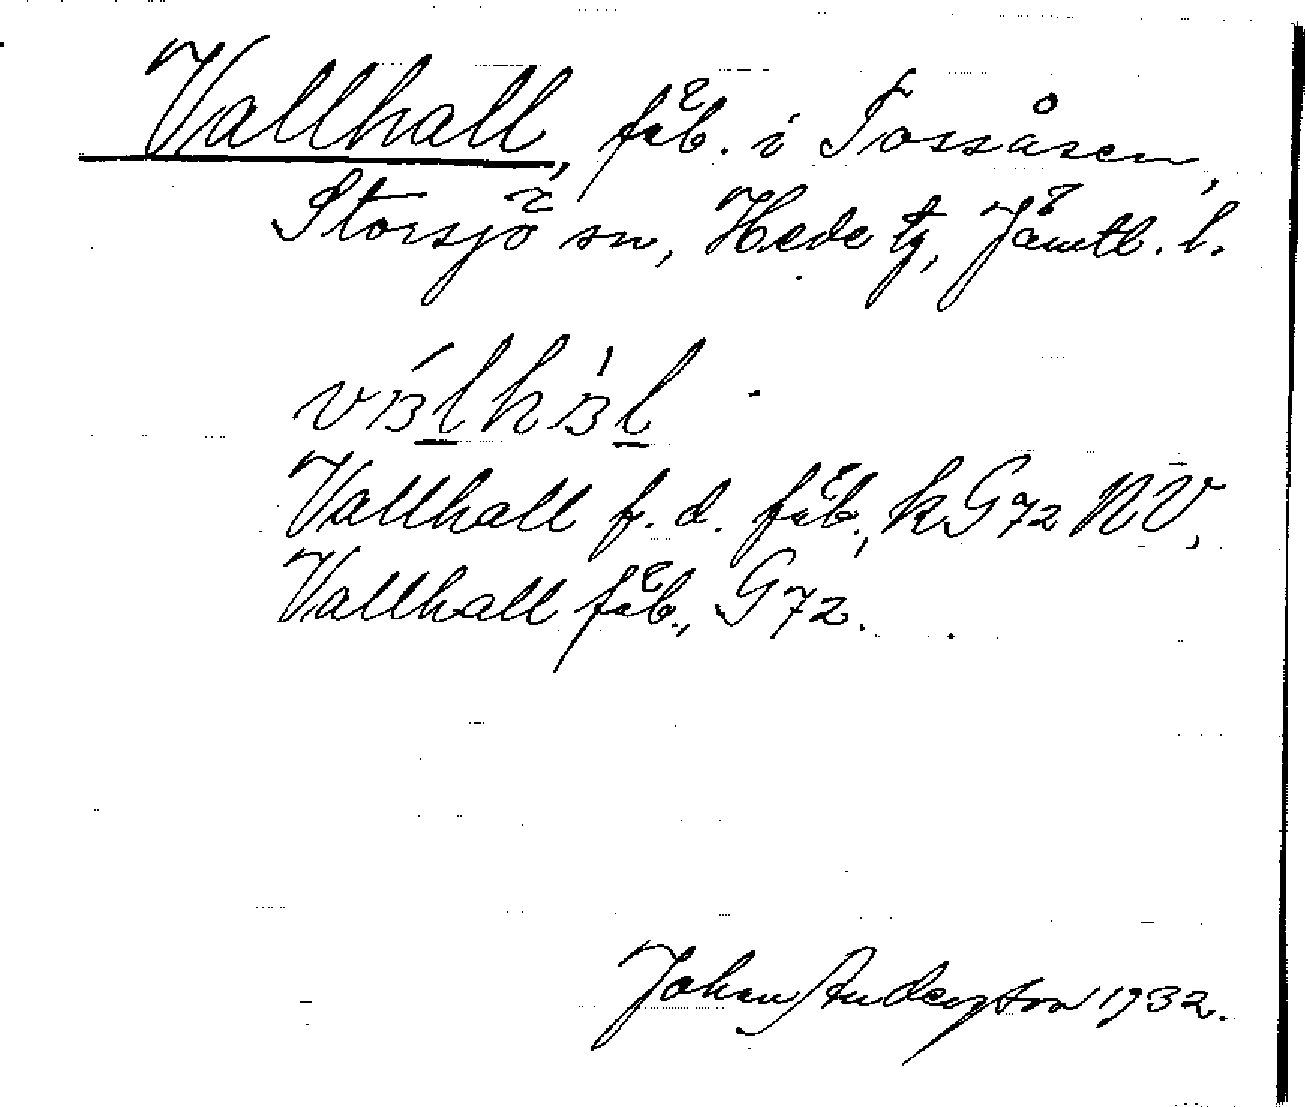 Vallhall, fäb. i Tossåsen,
Storsjö sn, Hede tg, Jämtl. l.
Vallhall f. d. fäb., kG72 NV,
Vallhall fäb., G72.
Johan Anderson 1932.